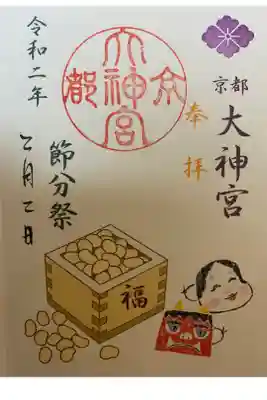 京都
大神宮
奉拝
京都
大神宮
節分祭
令和二年
二月二日
福